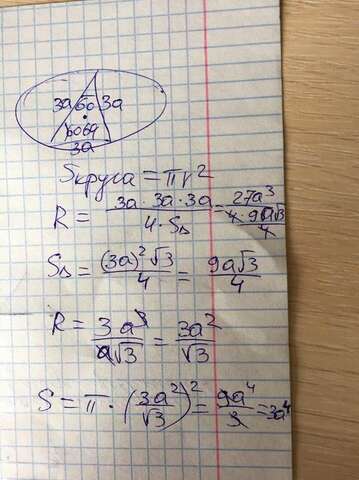 3a 60 3a
60 60
3a
Sкруга = πr²
R = (3a · 3a · 3a)/(4 · S△) = 27a³/(4 · 9a√3/4)
S△ = (3a)²√3/4 = 9a√3/4
R = 3a³/(a√3) = 3a²/√3
S = π · (3a²/√3)² = 9a⁴/3 = 3a⁴